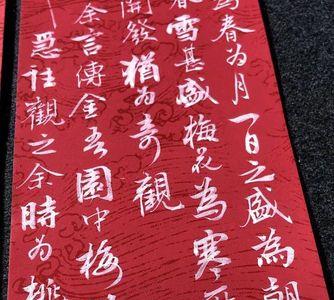 為春為月一日之盛為朝
春雪甚盛梅花為寒所
開發猶為奇觀
余言傳金吾園中梅
急往觀之余時為桃